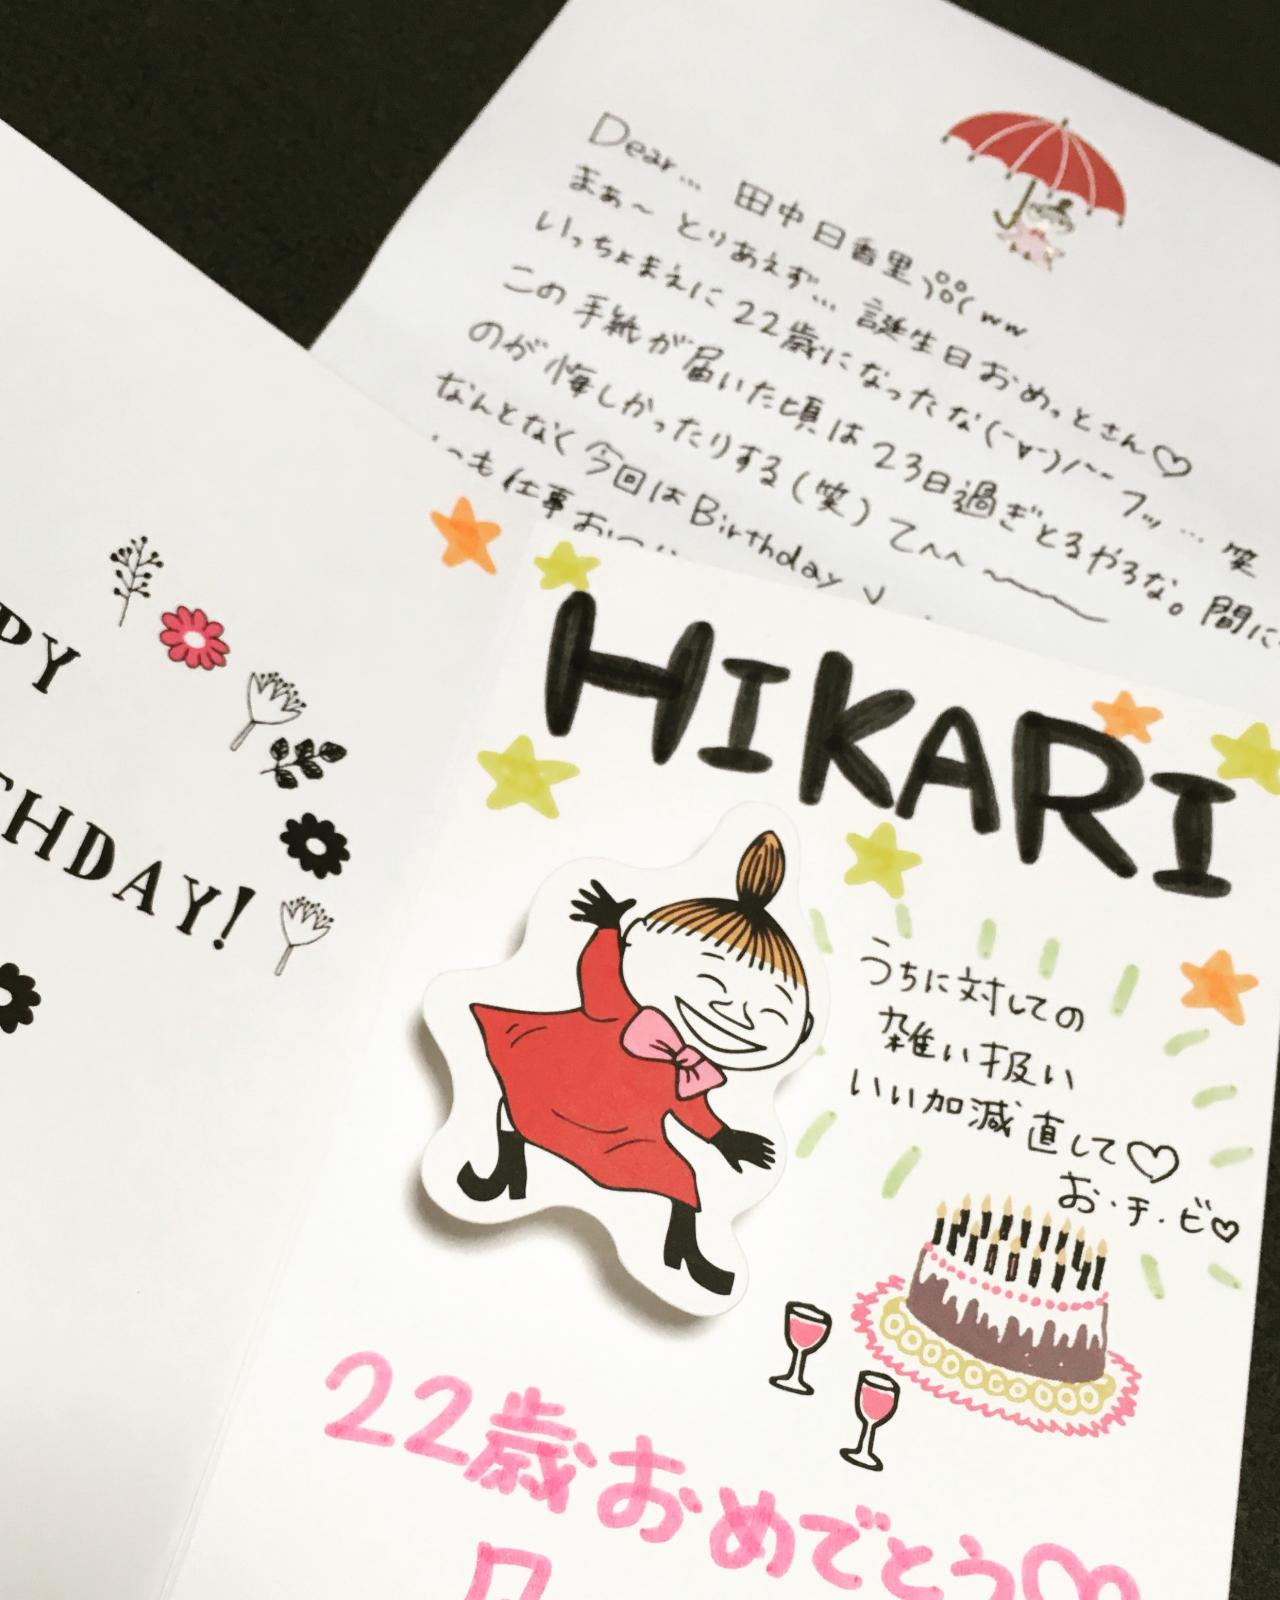 Dear... 田中日香里 ww
まぁ〜 とりあえず... 誕生日おめっとさん♡
いっちょまえに 22歳になったな(-∀-)/~~ フッ... 笑
この手紙が届いた頃は 23日過ぎとるやろな。間に
のが悔しかったりする(笑) てへへ 〜〜
なんとなく今回は Birthday
も仕事
PY
THDAY!
HIKARI
うちに対しての
雑い扱い
いい加減直して♡
お・チ・ビ♡
22歳おめでとう♡